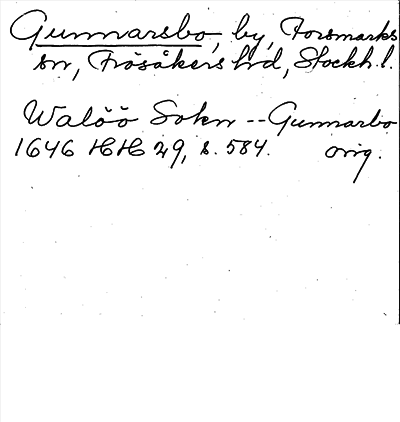 Gunnarsbo, by, Forsmarks
sn, Frösåkers hd, Stockh. l.
Walöö Sokn -- Gunnarbo
1646 HH 29, s. 584. orig.